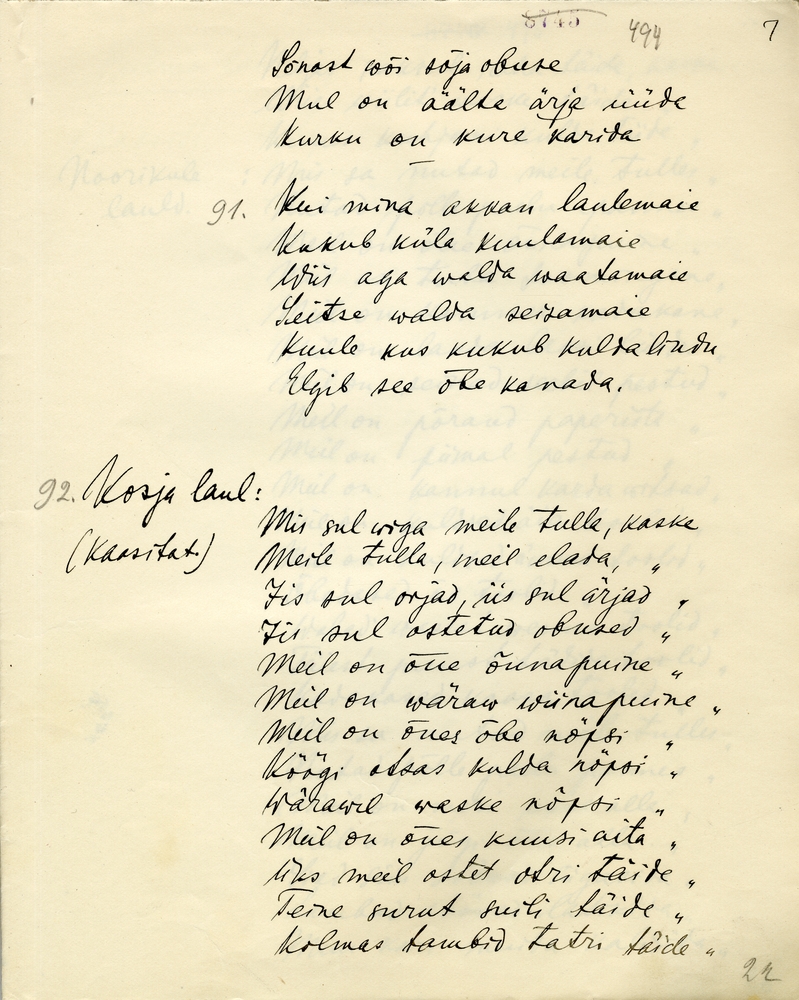 8745 494 7
Sõnast wõi sõja obuse
Mul on äälta ärja üüda
Kurku on kure karida
91. Kui mina akkan laulemaie
Kukub küla kuulamaie
Wiis aga walda waatamaie
Seitse walda seisamaie
Kuule kus kukub kulda lindu
Elgib see õbe kanada.
92. Kosja laul:
(Kaasitat.)
Mis sul wiga meile tulla, kaske
Meile tulla, meil elada, "
Iis sul orjad, iis sul ärjad "
Iis sul ostetud obused "
Meil on õue õunapuine "
Meil on wäraw wiinapuine "
Meil on õues õbe nõpsi "
Köögi otsas kulda nõpsi "
Wärawil waske nõpsi "
Meil on õues kuusi aita "
Üks meil ostet otri täide "
Teine surut suili täide "
Kolmas tambid tatri täide "
22